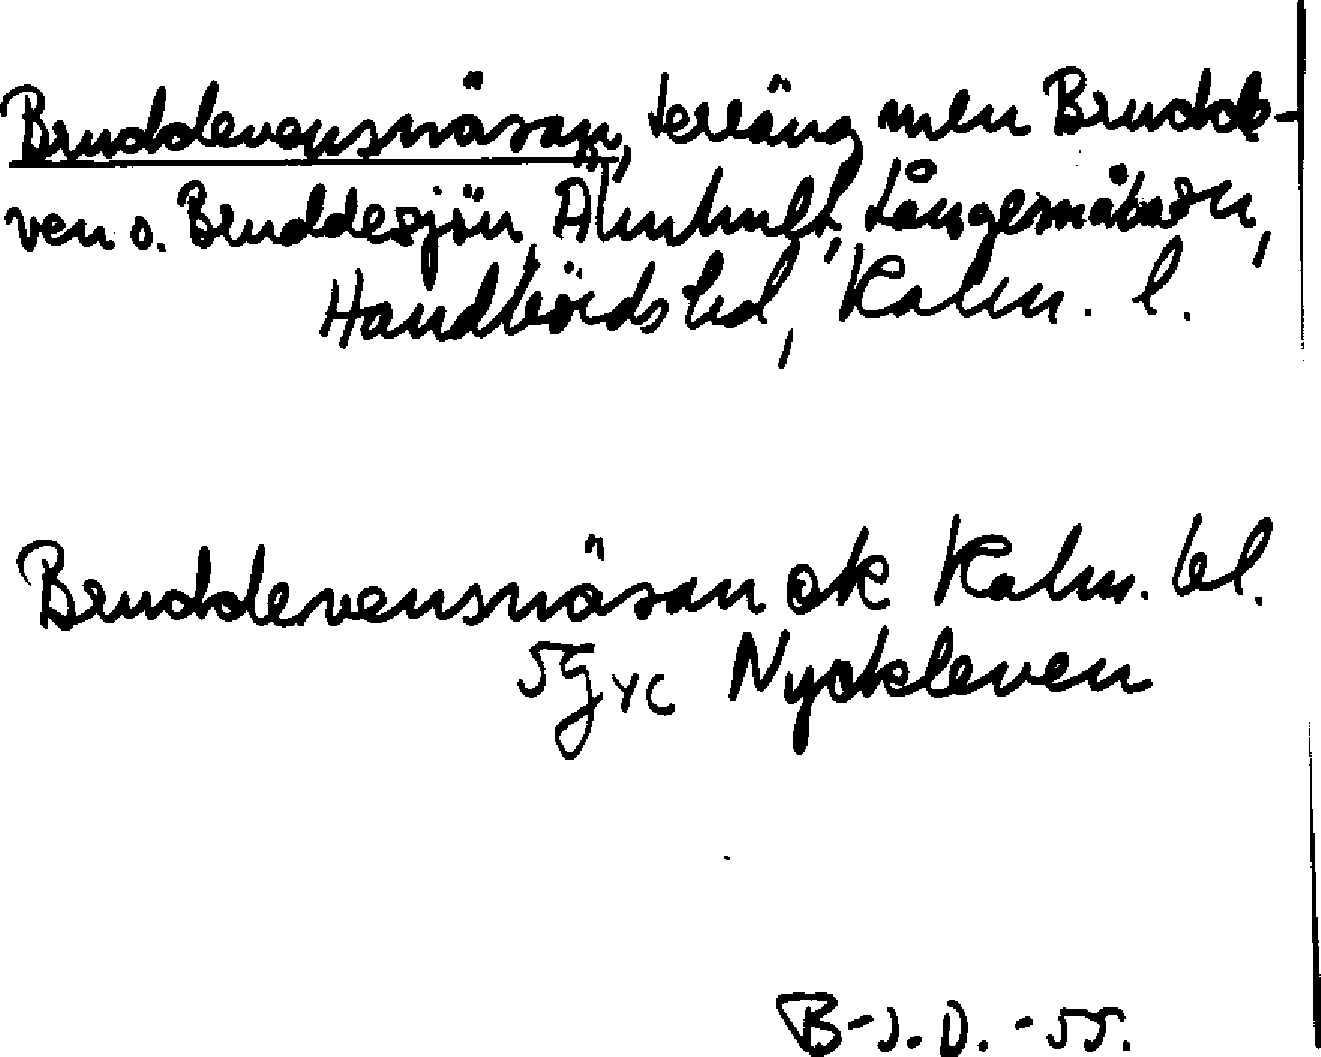 Bruddevensnäsan, terräng mlu Brudde-
ven o. Bruddesjön, Älmhult, Långemåla sn,
Handbörds hd, Kalm. l.
Bruddevensnäsan ek Kalm. bl.
5g YC Nyckleven
B-J.D. -55.